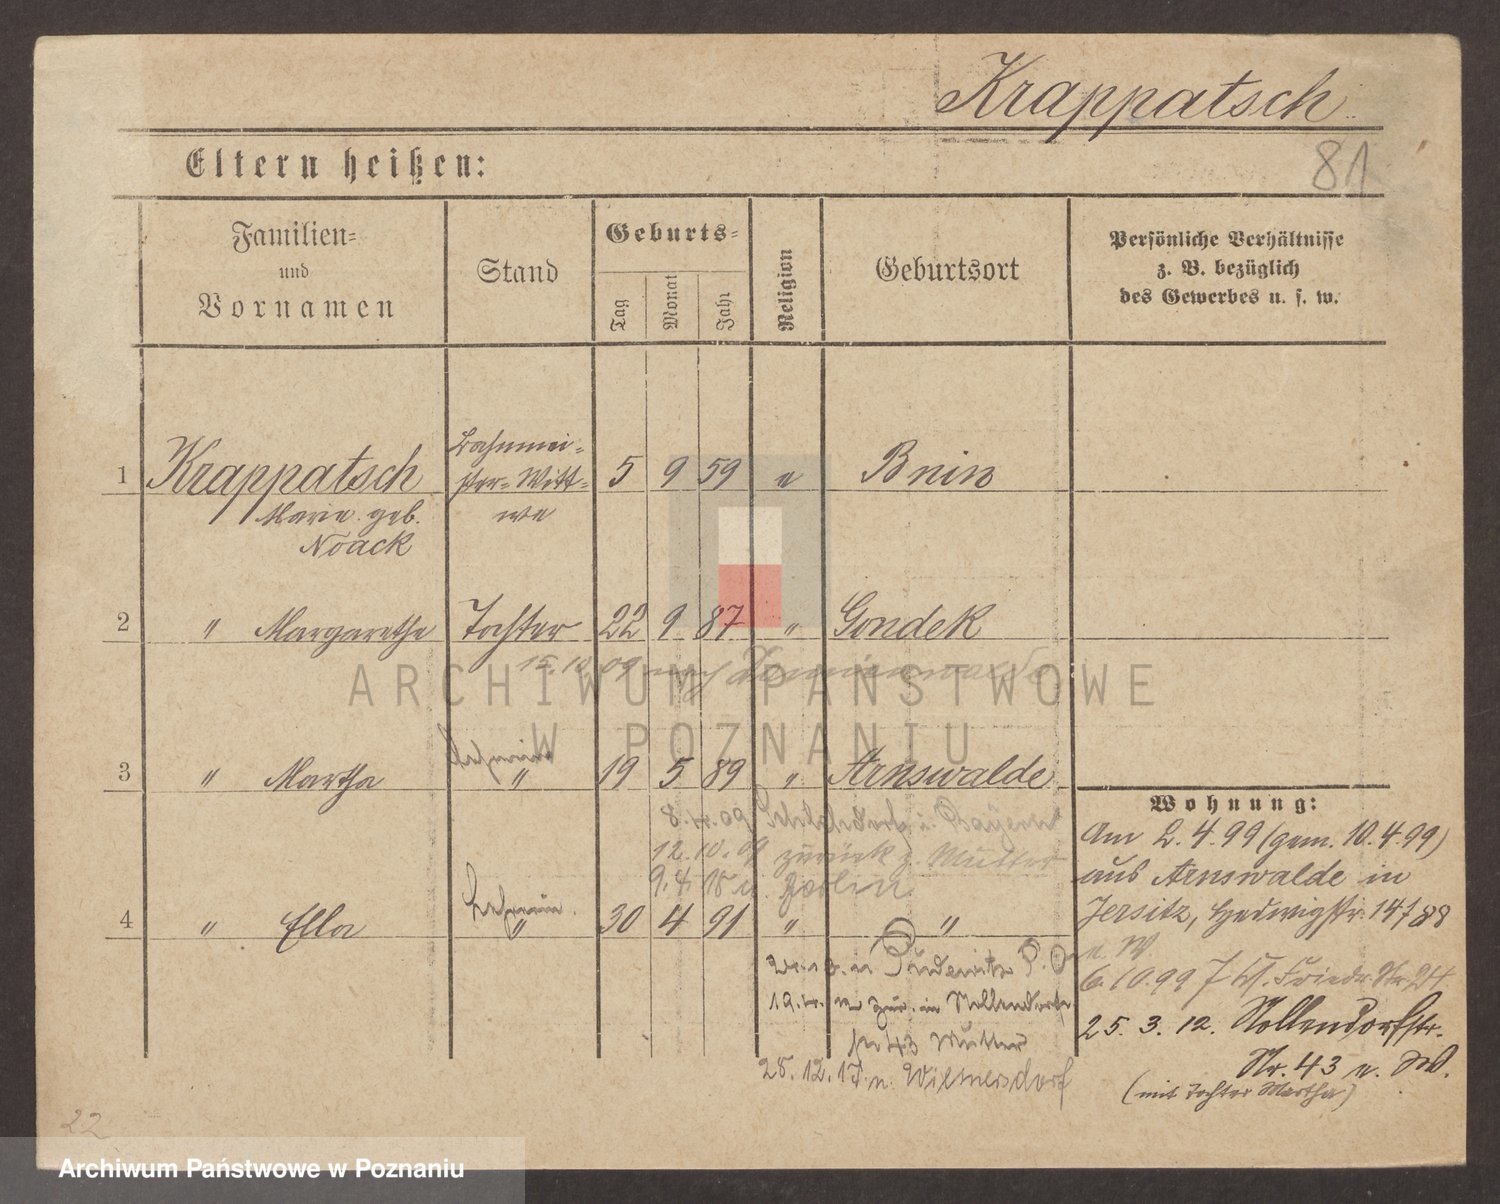 Krappatsch
81
Eltern heißen:
Familien=
und
Vornamen
Stand
Geburts=
Tag
Monat
Jahr
Religion
Geburtsort
Persönliche Verhältnisse
z. B. bezüglich
des Gewerbes u. s. w.
1 Krappatsch Bahnmei= 5 9 59 e Bnin
ster=Witt=
Marie geb. we
Noack
2 " Margarethe Tochter 22 9 87 " Gondek
15. 10 09 nach
3 " Martha " 19 5 89 " Arnswalde
8. 4. 09 i. Bayern
12. 10. 09 zurück z. Mutter
9. 4. Berlin
4 " Ella " 30 4 91 " "
Pudewitz
19. 4. zur. in Nollendorfstr
43 Mutter
28. 12. 17. n. Wilmersdorf
Wohnung:
Am 2. 4. 99 (gem. 10. 4. 99)
aus Arnswalde in
Jersitz, Hedwigstr. 14
6. 10. 99 Friedr. Str. 24
25. 3. 12. Nollendorfstr.
Nr. 43 n. W.
(mit Tochter Martha)
22
ARCHIWUM PAŃSTWOWE
W POZNANIU
Archiwum Państwowe w Poznaniu